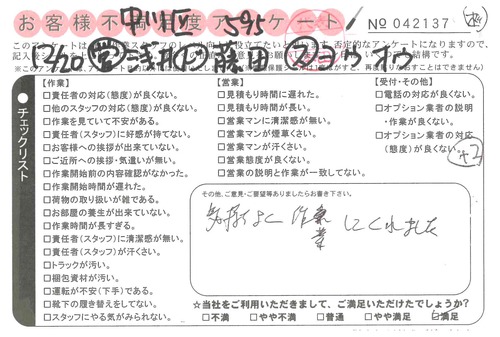 お客様不満度アンケート
中川区 595
№ 042137
2/20 浅井 藤田
チェックリスト
【作業】
□責任者の対応(態度)が良くない。
□他のスタッフの対応(態度)が良くない。
□作業を見ていて不安がある。
□責任者(スタッフ)に好感が持てない。
□お客様への挨拶が出来ていない。
□ご近所への挨拶・気遣いが無い。
□作業開始前の内容確認がなかった。
□作業開始時間が遅れた。
□荷物の取り扱いが雑である。
□お部屋の養生が出来ていない。
□作業時間が長すぎる。
□責任者(スタッフ)に清潔感が無い。
□責任者(スタッフ)が汗くさい。
□トラックが汚い。
□梱包資材が汚い。
□運転が不安(下手)である。
□靴下の履き替えをしてない。
□スタッフにやる気がみられない。
【営業】
□見積もり時間に遅れた。
□見積もり時間が長い。
□営業マンに清潔感が無い。
□営業マンが煙草くさい。
□営業マンが汗くさい。
□営業態度が良くない。
□営業の説明と作業が一致してない。
【受付・その他】
□電話の対応が良くない。
□オプション業者の説明
・作業が良くない。
□オプション業者の対応
(態度)が良くない。
+2
その他、ご意見・ご要望等ありましたらお書き下さい。
気持よく 作業 してくれました
☆当社をご利用いただきまして、ご満足いただけたでしょうか?
□不満 □やや不満 □普通 □やや満足 ☑満足